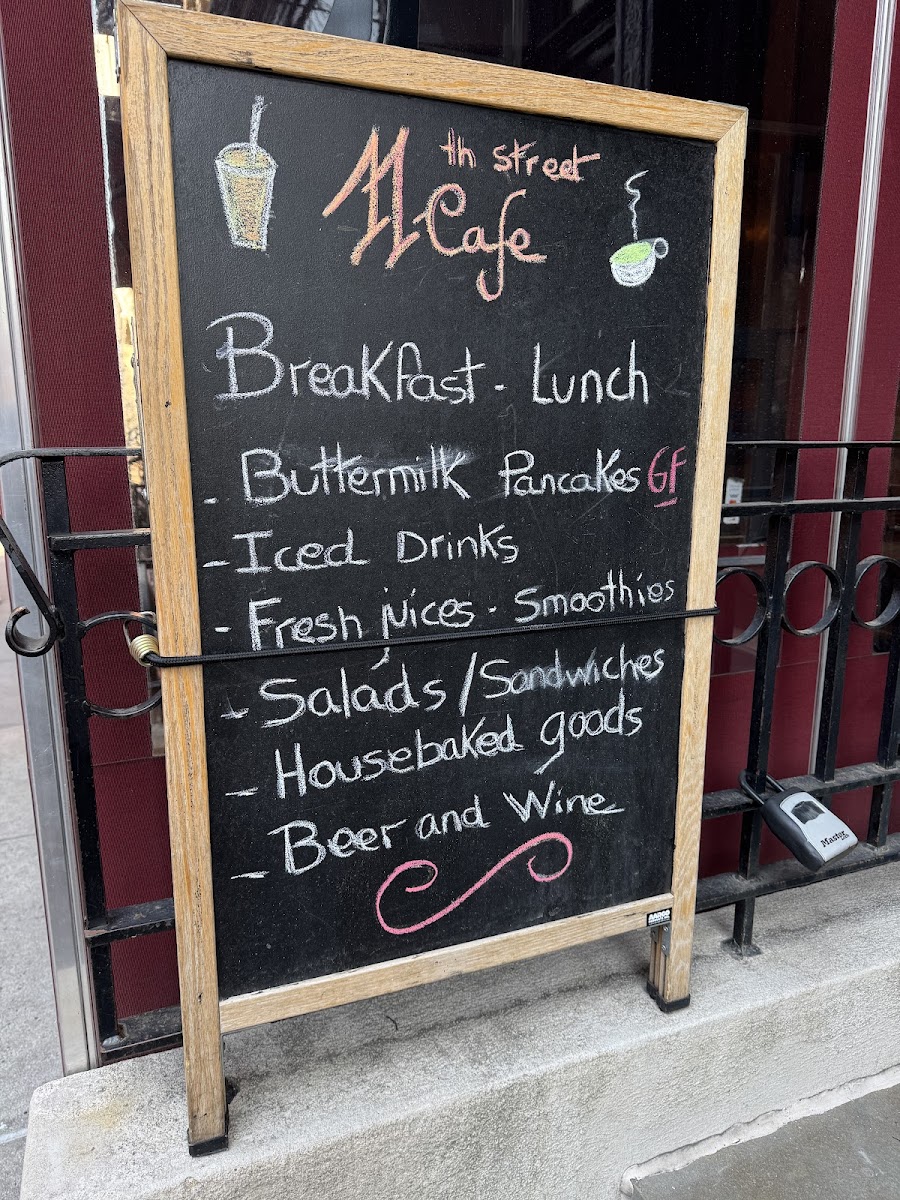 11th street
Cafe
Breakfast - Lunch
- Buttermilk Pancakes GF
- Iced Drinks
- Fresh juices - Smoothies
- Salads / Sandwiches
- Housebaked goods
- Beer and Wine
AARCO
Master